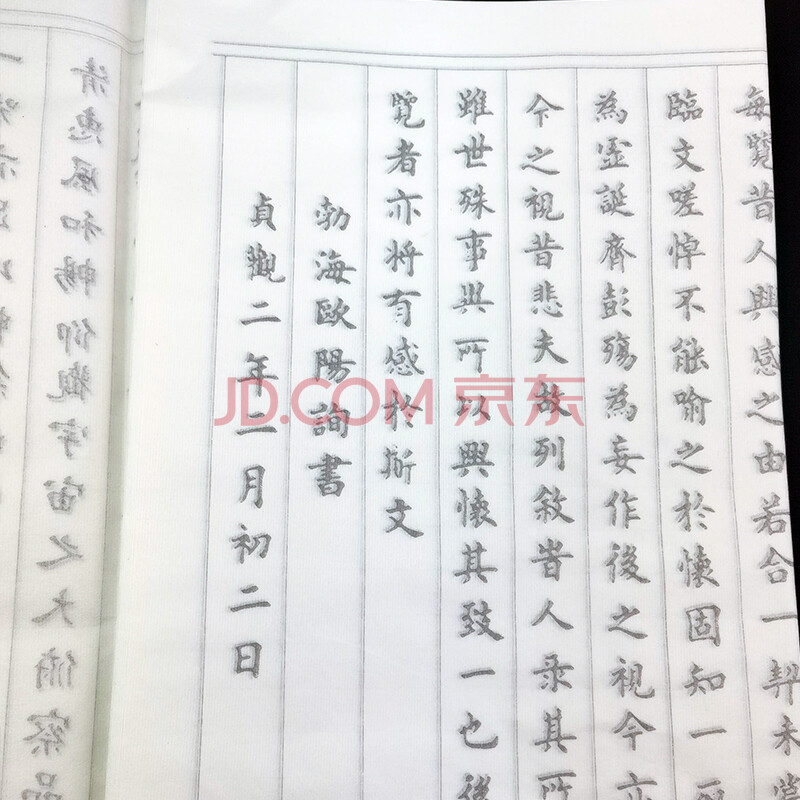 每覽昔人興感之由若合一契未嘗
臨文嗟悼不能喻之於懷固知一
為虛誕齊彭殤為妄作後之視今亦
今之視昔悲夫故列敘昔人录其所
雖世殊事異所以興懷其致一也後
覽者亦將有感於斯文
勃海歐陽詢書
貞觀二年二月初二日
清惠風和暢仰觀宇宙之大俯察品
JD.COM 京东